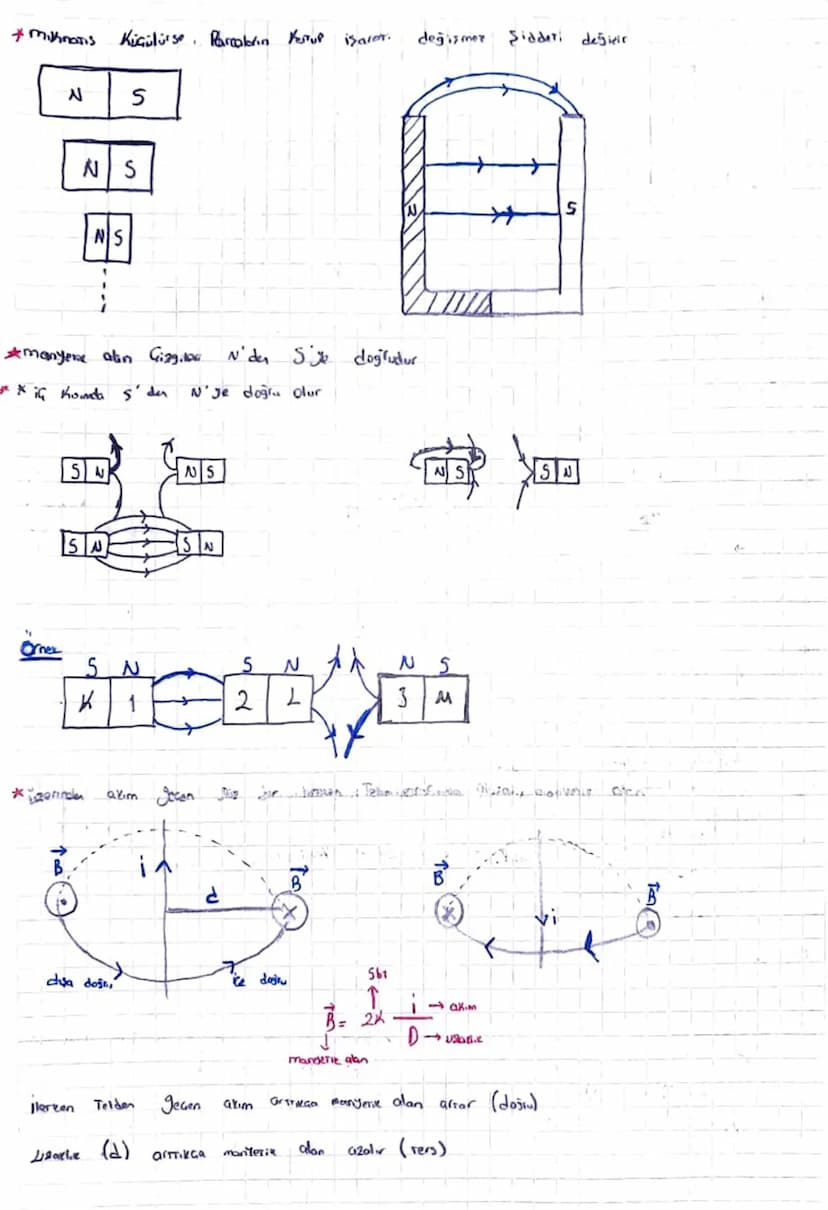 * Mıknatıs Küçülürse, Parçaların Kutup işareti değişmez Şiddeti değişir
N S
N S
N S
N S
* manyetik alan Çizgileri N'den S'ye doğrudur
* * iç kısımda S'den N'ye doğru olur
S N N S
N S S N
S N S N
Örnek
S N S N N S
K 1 2 L 3 M
* üzerinden akım geçen düz bir
B i d B
B i B
dışa doğru içe doğru
Sbt
B = 2K i → akım
D → uzaklık
manyetik alan
iletken Telden geçen akım arttıkça manyetik alan artar (doğru)
uzaklık (d) arttıkça manyetik alan azalır (ters)